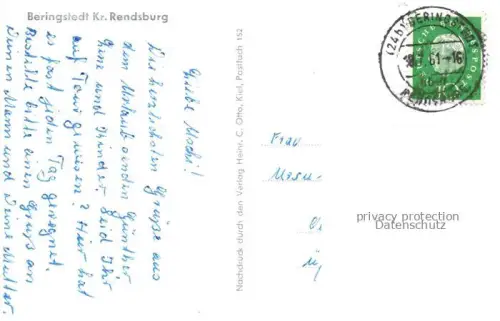 Beringstedt Kr. Rendsburg
Liebe Mocki!
Die herzlichsten Grüße aus
dem Urlaub senden Günther
Gine und Kinder. Seid Ihr
auf Tour gewesen? Hier hat
es fast jeden Tag geregnet.
Bestelle bitte einen Gruß an
Deinen Mann und Deine Mutter.
Nachdruck durch den Verlag Heinr. C. Otto, Kiel, Postfach 152
Frau
privacy protection
Datenschutz
(24b) BERINGSTEDT
61-16
DEUTSCHE BUNDESPOST